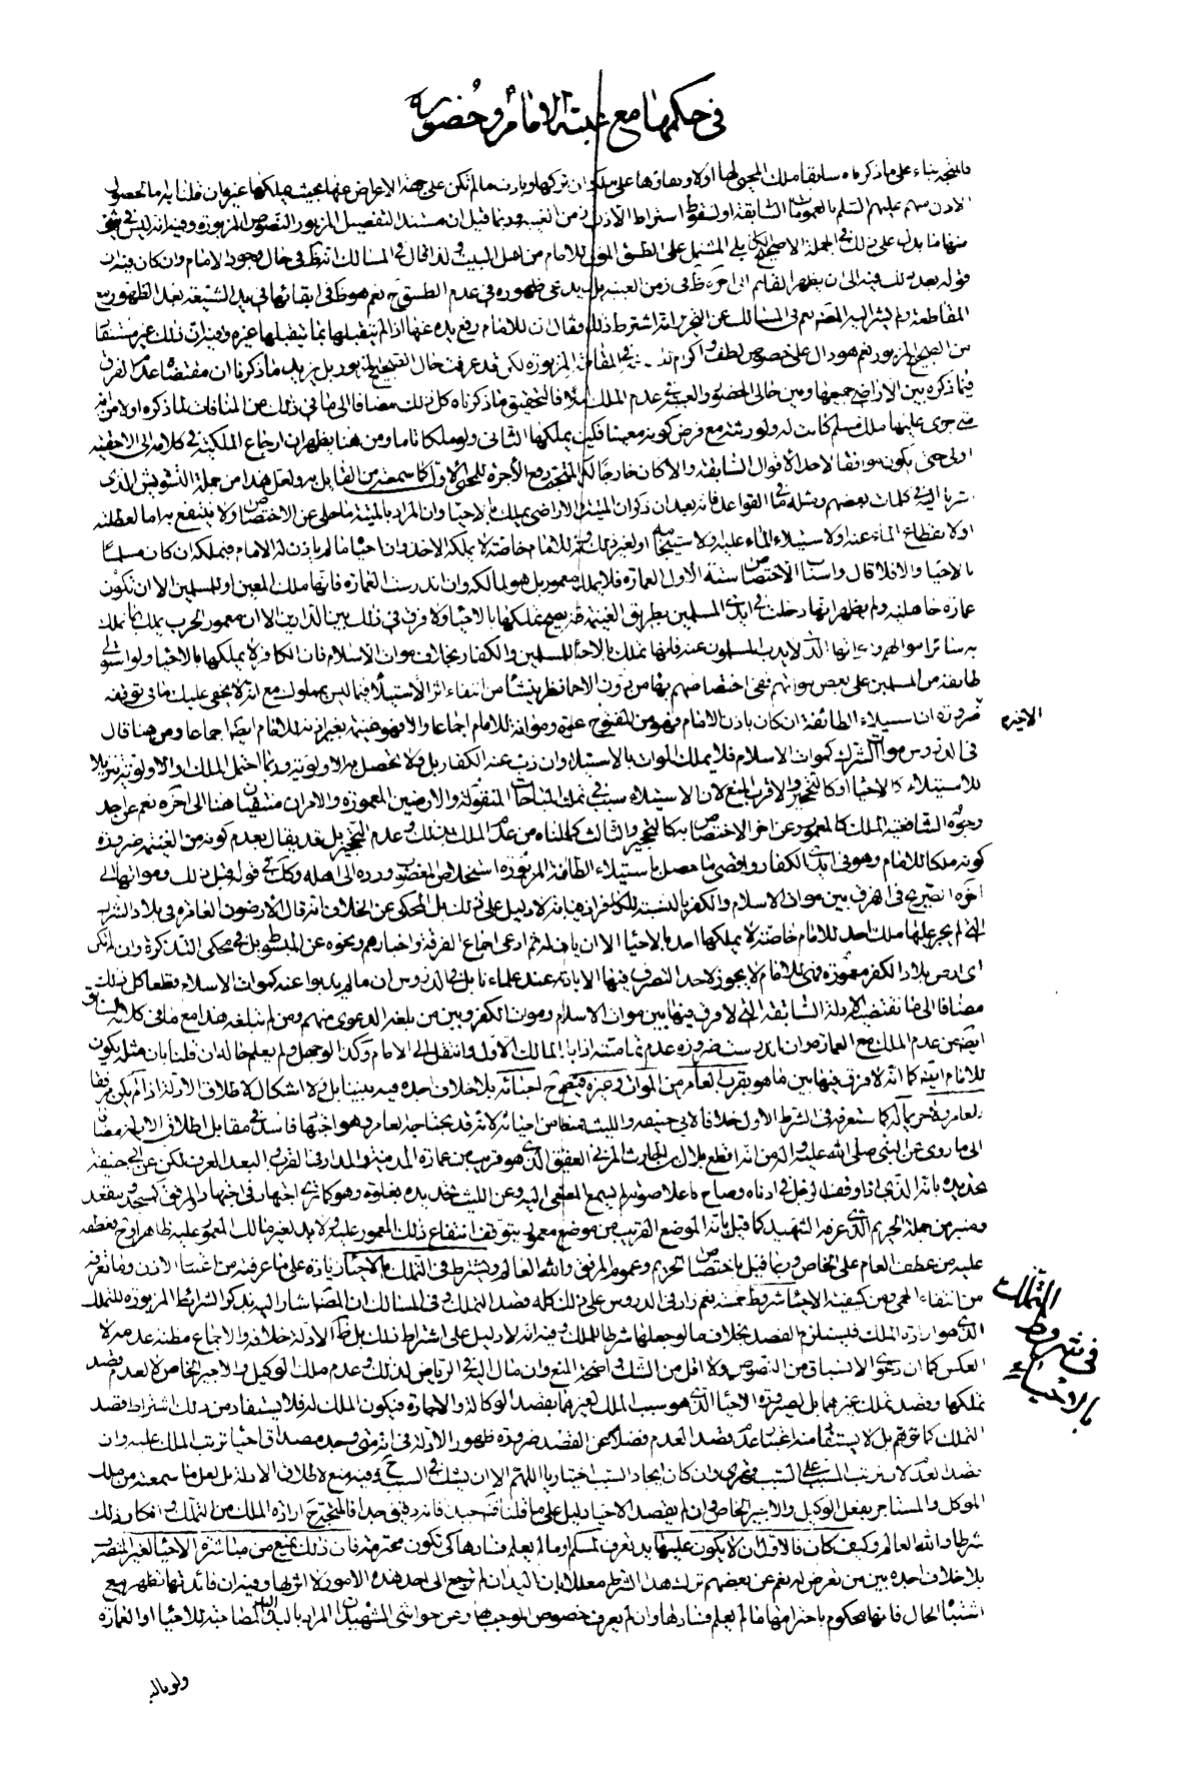 في حكمها مع غيبة الامام وحضوره
فالمتجه بناء على ما ذكرناه سابقا ملك المحيى لها اولا وبقاؤها على ملكه وان تركها وبارت ما لم تكن على جهة الاعراض عنها بحيث يملكها غيره وان قلنا
الاذن منهم عليهم السلم بالعمومات السابقة او لسقوط اشتراط الاذن زمن الغيبة وربما قيل ان مستند التفصيل المزبور النصوص المزبورة وفيه انه ليس في شئ
منها ما يدل على ذلك في الجملة الا صحيح الكابلي المشتمل على الطسق المؤدى للامام من اهل البيت ولذا قال في المسالك انه ظ في حال وجود الامام وان كان فيه ان
قوله بعد ذلك فيه الى ان يظهر القائم الى اخره ظ في زمن الغيبة بل يدعى ظهوره في عدم الطسق ح نعم هو ظ في ابقائها في يد الشيعة بعد الظهور مع
المقاطعة ولم يشر اليه المصنف نعم في المسالك عن التحرير انه اشترط ذلك وقال ان للامام رفع يده عنها اذا لم يتقبلها بما يتقبلها غيره وفيه ان ذلك غير مستفاد
من الصحيح المزبور نعم هو دال على خصوص لطف واكرام في المقاطعة المزبورة لكن قد عرفت حال الصحيح المزبور بل يزيد ما ذكرنا ان مقتضاه عدم الفرق
فيما ذكره بين الاراضي جميعها وبين حالي الحضور والغيبة في عدم الملك فالتحقيق ما ذكرناه كل ذلك مضافا الى ما في ذلك من المنافاة لما ذكره اولا من انه
متى جرى عليها ملك مسلم كانت له ولورثته مع فرض كونه معينا فكيف يملكها الثاني ولو ملكا تاما ومن هنا يظهر ان ارجاع الملكية في كلامه الى الاحقية
اولى حتى يكون موافقا لاحد الاقوال السابقة والا كان خارجا لكن المتجه دفع الاجرة للمحيي الاول كما سمعته من القائل به ولعل هذا من جملة التشويش الذي
في كلمات بعضهم ومثله في القواعد فانه بعد ان ذكر ان الميت من الاراضي يملك بالاحياء وان المراد بالميتة ما خلى عن الاختصاص ولا ينتفع به اما لعطلته
او لانقطاع الماء عنه او لاستيلاء الماء عليه او لاستيجامه او لغير ذلك وهو للامام خاصة لا يملكه الاخذ وان احياه ما لم ياذن له الامام فيملكه ان كان مسلما
بالاحياء والا فلا قال واسباب الاختصاص ستة الاول العمارة فلا يملك معمور بل هو لمالكه وان اندرست العمارة فانها ملك لمعين او للمسلمين الا ان تكون
عمارة جاهلية ولم يظهر انها دخلت في ايدي المسلمين بطريق الغنيمة فانه يصح تملكها بالاحياء ولا فرق في ذلك بين الدارين الا ان معمور دار الحرب يملك بما يملك
به سائر اموالهم ومواتها الذي لا يذب المسلمون عنه فانها تملك بالاحياء للمسلمين والكفار بخلاف موات الاسلام فان الكافر لا يملكها بالاحياء ولو استولى
طائفة من المسلمين على بعض مواتهم ففي اختصاصهم بها من دون الاحياء نظر ينشأ من انتفاء اثر الاستيلاء فيما ليس بمملوك مع انه لا يخفى عليك ما في توقفه
الاخيرة
ضرورة ان استيلاء الطائفة ان كان باذن الامام فهو من المفتوح عنوة ومواته للامام اجماعا والا فهو غنيمة بغير اذنه للامام ايضا اجماعا ومن هنا قال
في الدروس موات الشرك كموات الاسلام فلا يملك الموات بالاستيلاء وان ذب عنه الكفار بل ولا تحصل به الاولوية وربما احتمل الملك او الاولوية تنزيلا
للاستيلاء كالاحياء او كالتحجير والاقرب المنع لان الاستيلاء سبب في تملك المباحات المنقولة والارضين المعمورة والامران منتفيان هنا الى اخره نعم عن احد
وجوه الشافعية الملك كالمعمور وعن اخر الاختصاص به كالتحجير والثالث كما قلناه من عدم الملك بذلك وعدم التحجير بل قد يقال بعدم كونه من الغنيمة ضرورة
كونه ملكا للامام وهو في ايدي الكفار واقصى ما حصل باستيلاء الطائفة المزبورة استخلاص المغصوب ورده الى اهله وكذا في قوله قبل ذلك ومواتها الى
اخره الصريح في الفرق بين موات الاسلام والكفر بالنسبة للكافر اذ فيه انه لا دليل على ذلك بل المحكي عن الخلاف انه قال الارضون الغامرة في بلاد الشرك
التي لم يجر عليها ملك احد للامام خاصة لا يملكها احد بالاحياء الا ان ياذن له ثم ادعى اجماع الفرقة واخبارهم ونحوه عن المبسوط بل في محكي التذكرة وان لم تكن
اي ارض بلاد الكفر معمورة فهي للامام لا يجوز لاحد التصرف فيها الا باذنه عند علمائنا بل في الدروس ان ما لم يذبوا عنه كموات الاسلام قطعا كل ذلك
مضافا الى ما تقتضيه الادلة السابقة التي لا فرق فيها بين موات الاسلام وموات الكفر وبين من بلغته الدعوى منهم ومن لم تبلغه هذا مع ما في كلامه السابق
ايضا من عدم الملك مع العمارة وان اندرست ضرورة عدم تماميته اذا باد المالك الاول وانتقل الى الامام وكذا لو جهل ولم يعلم حاله ان قلنا بان مثله يكون
للامام ايضا كما انه لا فرق فيها بين ما هو بقرب العامر من الموات وغيره فيصح احيائه بلا خلاف اجده فيه بيننا بل ولا اشكال لاطلاق الادلة اذا لم يكن مرفقا
للعامر ولا حريما له كما ستعرفه في الشرط الاول خلافا لابي حنيفة والليث فمنعا من احيائه لانه قد يحتاجه العامر وهو اجتهاد فاسد في مقابل اطلاق الادلة مضافا
الى ما روي عن النبي صلى الله عليه واله من انه اقطع بلال بن الحارث المزني العقيق الذي هو قريب من عمارة المدينة والمدار في القرب والبعد العرف لكن عن ابي حنيفة
تحديده بانه الذي اذا وقف الرجل في ادناه وصاح باعلا صوته لم يسمع المصغي اليه وعن الليث تحديده بغلوة وهو كما ترى اجتهاد في اجتهاد والمرفق كمسجد ومقعد
ومنبر من جملة الحريم الذي عرفه الشهيد كما قيل بانه الموضع القريب من موضع معمور يتوقف انتفاع ذلك المعمور عليه ولا يد لغير مالك المعمور عليه ظاهرا وح فعطفه
عليه من عطف العام على الخاص وربما قيل باختصاص الحريم وعموم المرفق والله العالم ويشترط في التملك بالاحياء زيادة على ما عرفته من اعتبار الاذن وما تعرفه
من انتفاء الحمى ومن كيفية الاحياء شروط خمسة نعم زاد في الدروس على ذلك كله قصد التملك وفي المسالك ان المصنف اشار اليه بذكر الشرائط المزبورة للتملك
الذي هو ارادة الملك فيستلزم القصد بخلاف ما لو جعلها شرطا للملك وفيه انه لا دليل على اشتراط ذلك بل ظاهر الادلة خلافه والاجماع مظنة عدمه لا
العكس كما ان دعوى الانسياق من النصوص ولا اقل من الشك واضحة المنع وان مال اليه في الرياض لذلك وعدم ملك الوكيل والاجير الخاص لا لعدم قصد
تملكها وقصد تملك غيرهما بل لصيرورة الاحياء الذي هو سبب الملك لغيرهما بقصد الوكالة والاجارة فيكون الملك له فلا يستفاد من ذلك اشتراط قصد
التملك كما توهم بل لا يستفاد منه اعتبار عدم قصد العدم فضلا عن القصد ضرورة ظهور الادلة في انه متى وجد مصداق احيا ترتب الملك عليه وان
قصد العدم لان ترتب المسبب على السبب قهري وان كان ايجاد السبب اختياريا اللهم الا ان يشك في السبب ح وفيه منع لاطلاق الادلة بل لعل ما سمعته من ملك
الموكل والمستاجر بفعل الوكيل والاجير الخاص وان لم يقصد الاحياء دليل على ما قلناه فت جيدا فانه دقيق جدا فالمتجه ح ارادة الملك من التملك وامكان ذلك
شرطا والله العالم وكيف كان فالاول ان لا يكون عليها يد تعرف لمسلم او مسالم ما لم يعلم فسادها كي تكون محترمة فان ذلك يمنع من مباشرة الاحياء لغير المتصرف
بلا خلاف اجده بين من تعرض له نعم عن بعضهم ترك هذا الشرط معللا بان اليد ان لم ترجع الى احد هذه الامور لا اثر لها وفيه ان فائدتها تظهر مع
اشتباه الحال فانها محكوم باحترامها ما لم يعلم فسادها وان لم يعرف خصوص الموجب لها وعن حواشي الشهيد ان المراد باليد اليد المصاحبة للاحياء او العمارة
في شروط التملك
بالاحياء